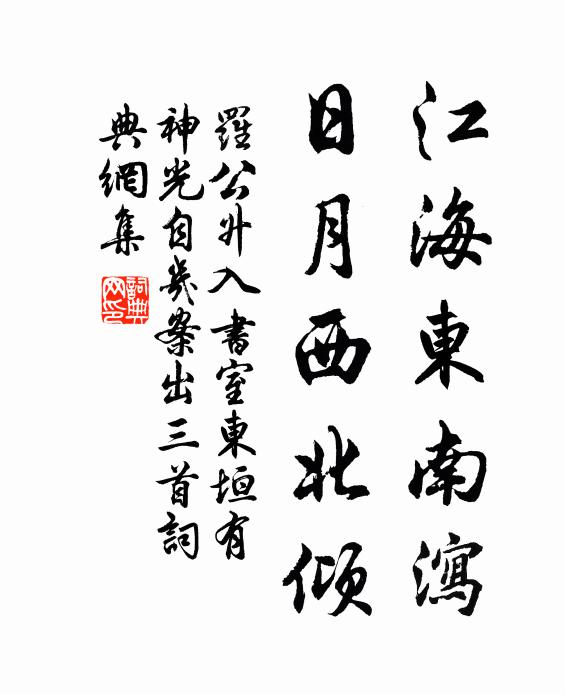 江海東南瀉
日月西北傾
羅公升入書室東垣有
神光自几案出三首詞
典網集
詞典網印